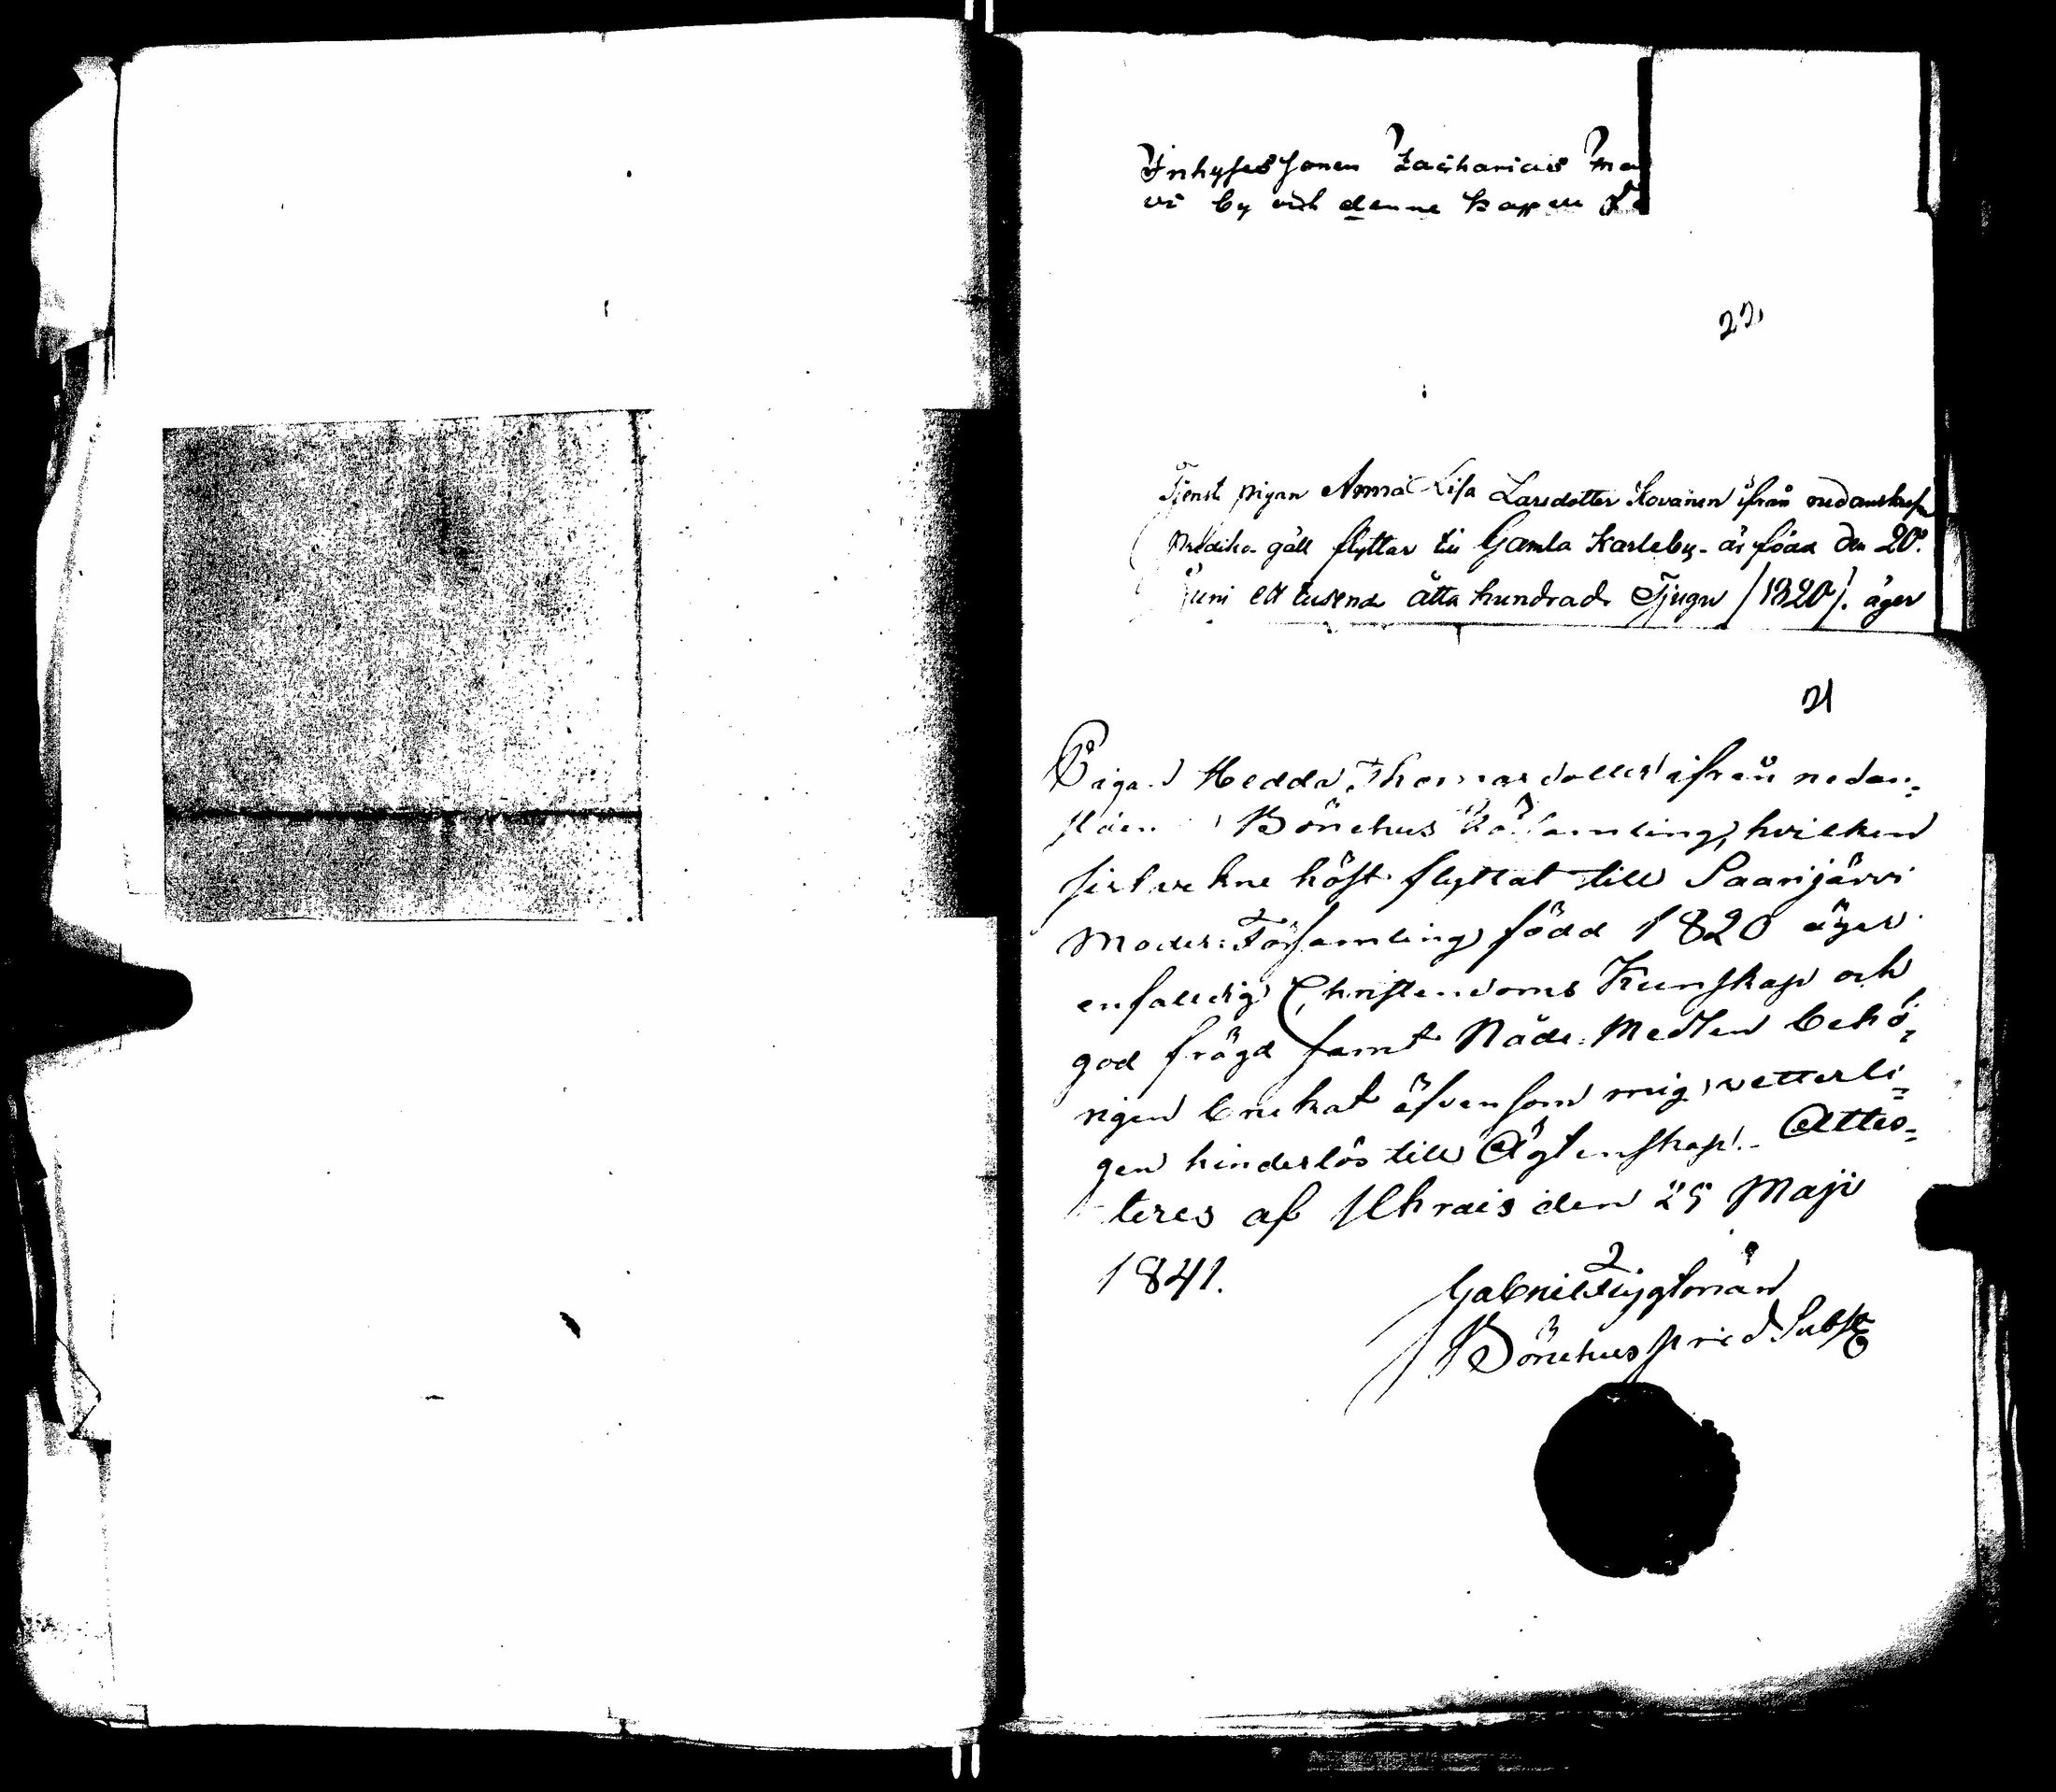 Inhyses sonen Zacharias Ma
vi by och denne Kappell Fö
22
Tjenst pigan Anna Lisa Larsdotter Kovanen ifrån nedanskrefne
Prediko gäll flyttar till Gamla Karleby - är född den 20:
Juni ett tusend åtta hundrade Tjugu /1820/. äger
21
Pigan Hedda Thomasdotter ifrån nedan-
Bönehus Församling, hvilken
sistvekne höst flyttat till Saarijärvi
Moder=Församling född 1820 äger
enfalldig Christendoms Kunskap och
god frägd samt Nåde=Medlen behö-
rigen brukat äfvensom mig vetterli-
gen hinderlös till Ägtenskap. - Attes-
teres af den 25 Maji
1841.
Gabriel
Bönehus pred Subst